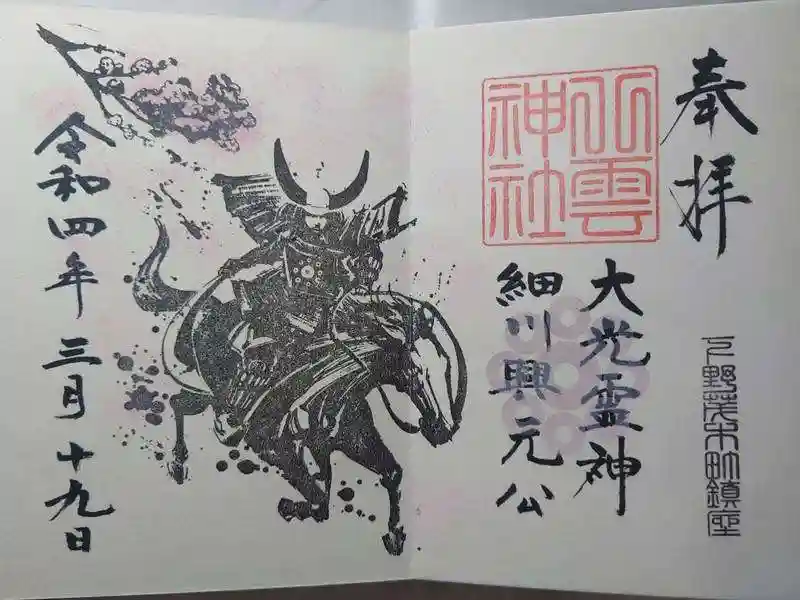 奉拝
下野茂木町鎮座
八雲
神社
大光霊神
細川興元公
令和四年三月十九日